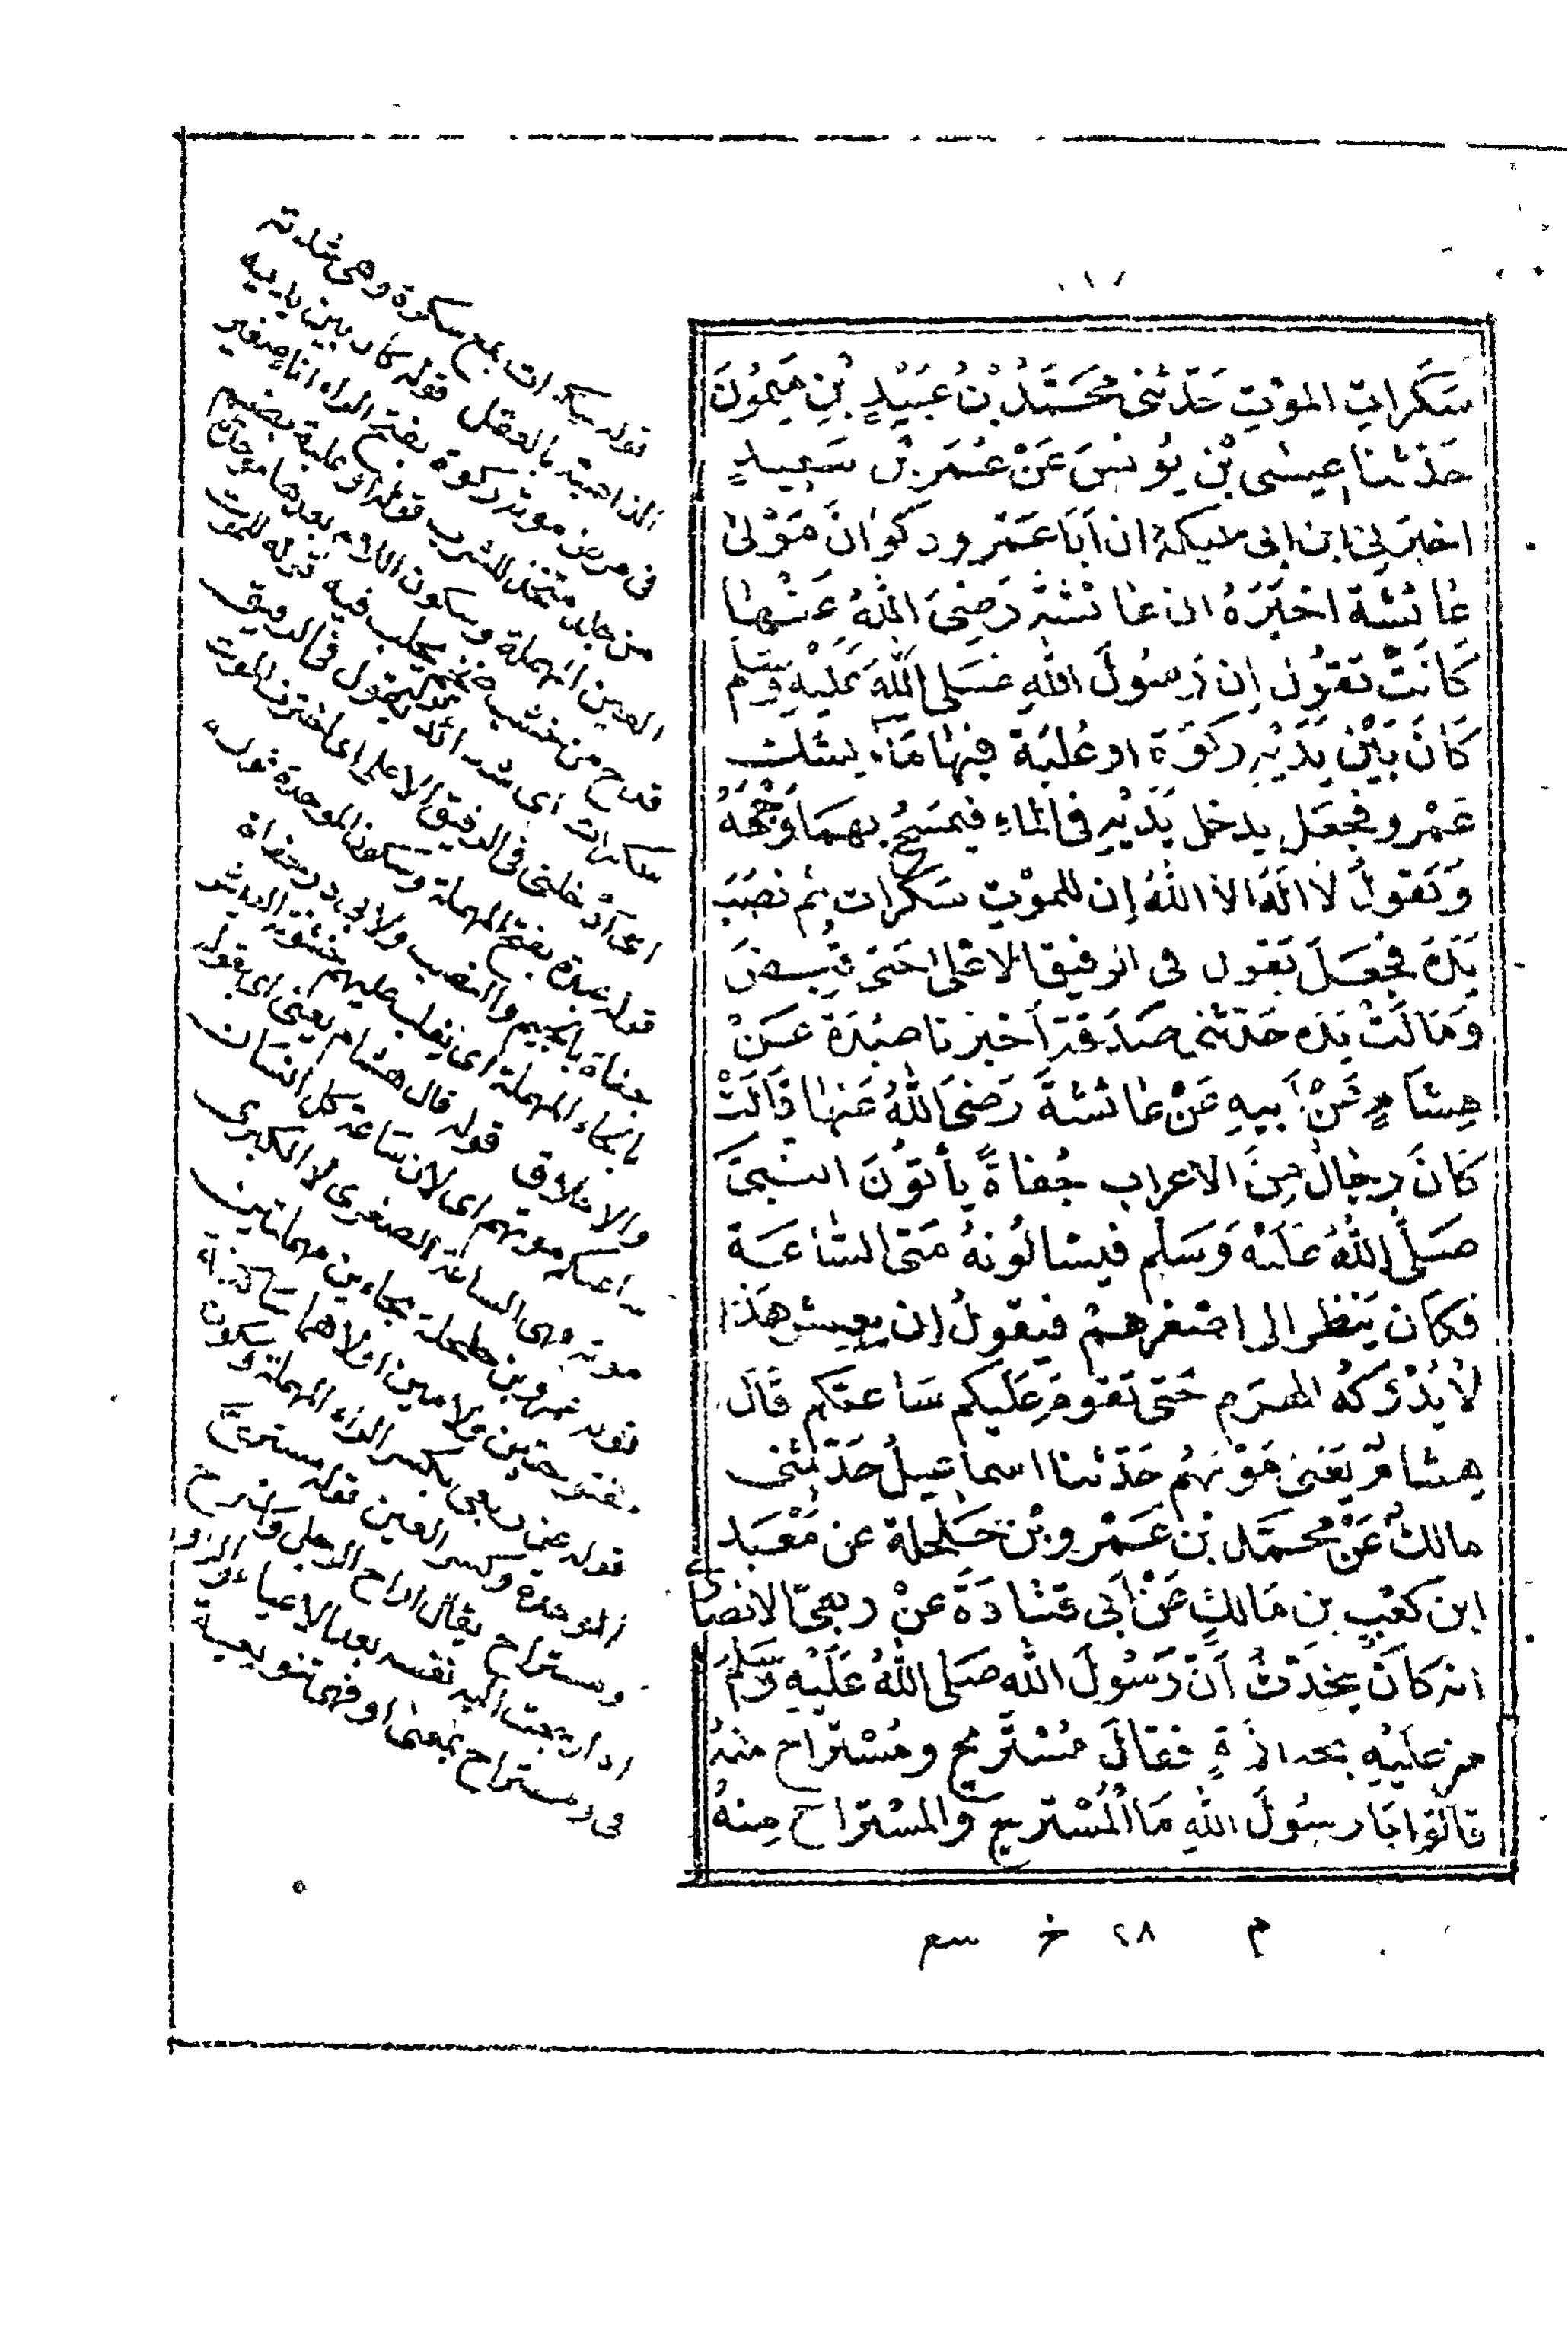 سَكَرَاتِ المَوْتِ حَدَّثَنى مُحَمَّدُ بْنُ عُبَيْدٍ بْنِ مَيمُونَ
حَدَثنا عيسٰى بْن يُونسَ عَنْ عُمَر بْن سَعِيدٍ
اخبَرنى ابن ابى مليكة ان اَبَا عَمْرو ذكوَانَ مَوْلىٰ
عٰائشَةَ اخبَرَهُ ان عٰائشَةَ رَضِىَ اللهُ عَنْهٰا
كَانَتْ تقوُل اِن رَسُولَ اللهِ صَلى اللهُ عَلَيْهِ وَسَلم
كَانَ بَيْنَ يَدَيْهِ ركوَة او عُلبَة فِيهٰا مَآء يشك
عَمْرو فجعَل يدخل يَدَيْهِ فى المٰاءِ فيمسَحُ بهمَا وَجْهَهُ
وَيَقولُ لا الهَ الا اللهُ اِن للموْتِ سَكرَات ثم نصَبَ
يَدَه فجعَلَ يَقول فى الرفيق الاعْلىٰ حَتى قبِضَ
وَمَالَتْ يَدَه حَدثنى صَدَقة اَخبرَنا عبْدَة عَنْ
هِشَامٍ عَنْ اَبيهِ عَنْ عٰائشةَ رَضىَ اللهُ عَنهٰا قَالَتْ
كانَ رِجٰالٌ مِنَ الاعراب جُفاةً يأتوُنَ النبىَّ
صَلَّى اللهُ عَلَيْهِ وَسَلم فيسْالُونهُ مَتى السَّاعَة
فكَان يَنظر الى اصْغرهمْ فيَقولُ اِن يعِشْ هَذا
لا يُدْركهُ الهَرَم حَتى تَقومَ عَليكم سَاعتكم قَالَ
هِشامٌ يَعْنى مَوْتهُم حَدّثنا اسماعيلُ حَدّثنى
مالكٌ عَنْ مُحمَّد بْن عَمْرو بْن حَلحلة عن مَعْبَد
ابن كعْبٍ بن مَالكٍ عَنْ اَبى قتٰادَةَ عَنْ ربعىّ الانصَارى
انه كاَنَ يحَدّثُ اَنّ رَسُولَ اللهِ صَلى اللهُ عَلَيْهِ وَسَلمَ
مر عَليْهِ بجنازَةٍ فقالَ مُسْتَريح ومُسْتَراح مِنْهُ
قالوُا يَا رسُولَ اللهِ مَا المُسْتريح وَالمسْتَراح مِنهُ
قوله سكرات جمع سكرة وهى شدته
الذاهبة بالعقل قوله كان بين يديه
فى مرض موته ركوة بفتح الراء اناء صغير
من جلد متخذ للشرب قوله او علبة بضم
العين المهملة وسكون اللام بعدها موحدة
قدح من خشب ضخم يحلب فيه قوله للموت
سكرات اى شدائد يقول فى الرفيق
اى ادخلنى فى الرفيق الاعلى اى اخترت الموت
قوله عبدة بفتح المهملة وسكون الموحدة قوله
جفاة بالجيم والنصب ولابى ذر حفاة
بالحاء المهملة اى يغلب عليهم خشونة
والاخلاق قوله قال هشام يعنى اى بقوله
ساعتكم موتهم اى لان ساعة كل انسان
موته وهى الساعة الصغرى لا الكبرى
قوله عمرو بن حلحلة بحاءين مهملتين
مفتوحتين ولامين اولاهما ساكنة
قوله عن ربعى بكسر الراء المهملة وسكون
الموحدة وكسر العين قوله مستريح
ومستراح يقال اراح الرجل واستراح
اذا رجعت اليه نفسه بعد الاعياء والواو
فى ومستراح بمعنى او فهى تنويعية
م ٢٨ خ سع